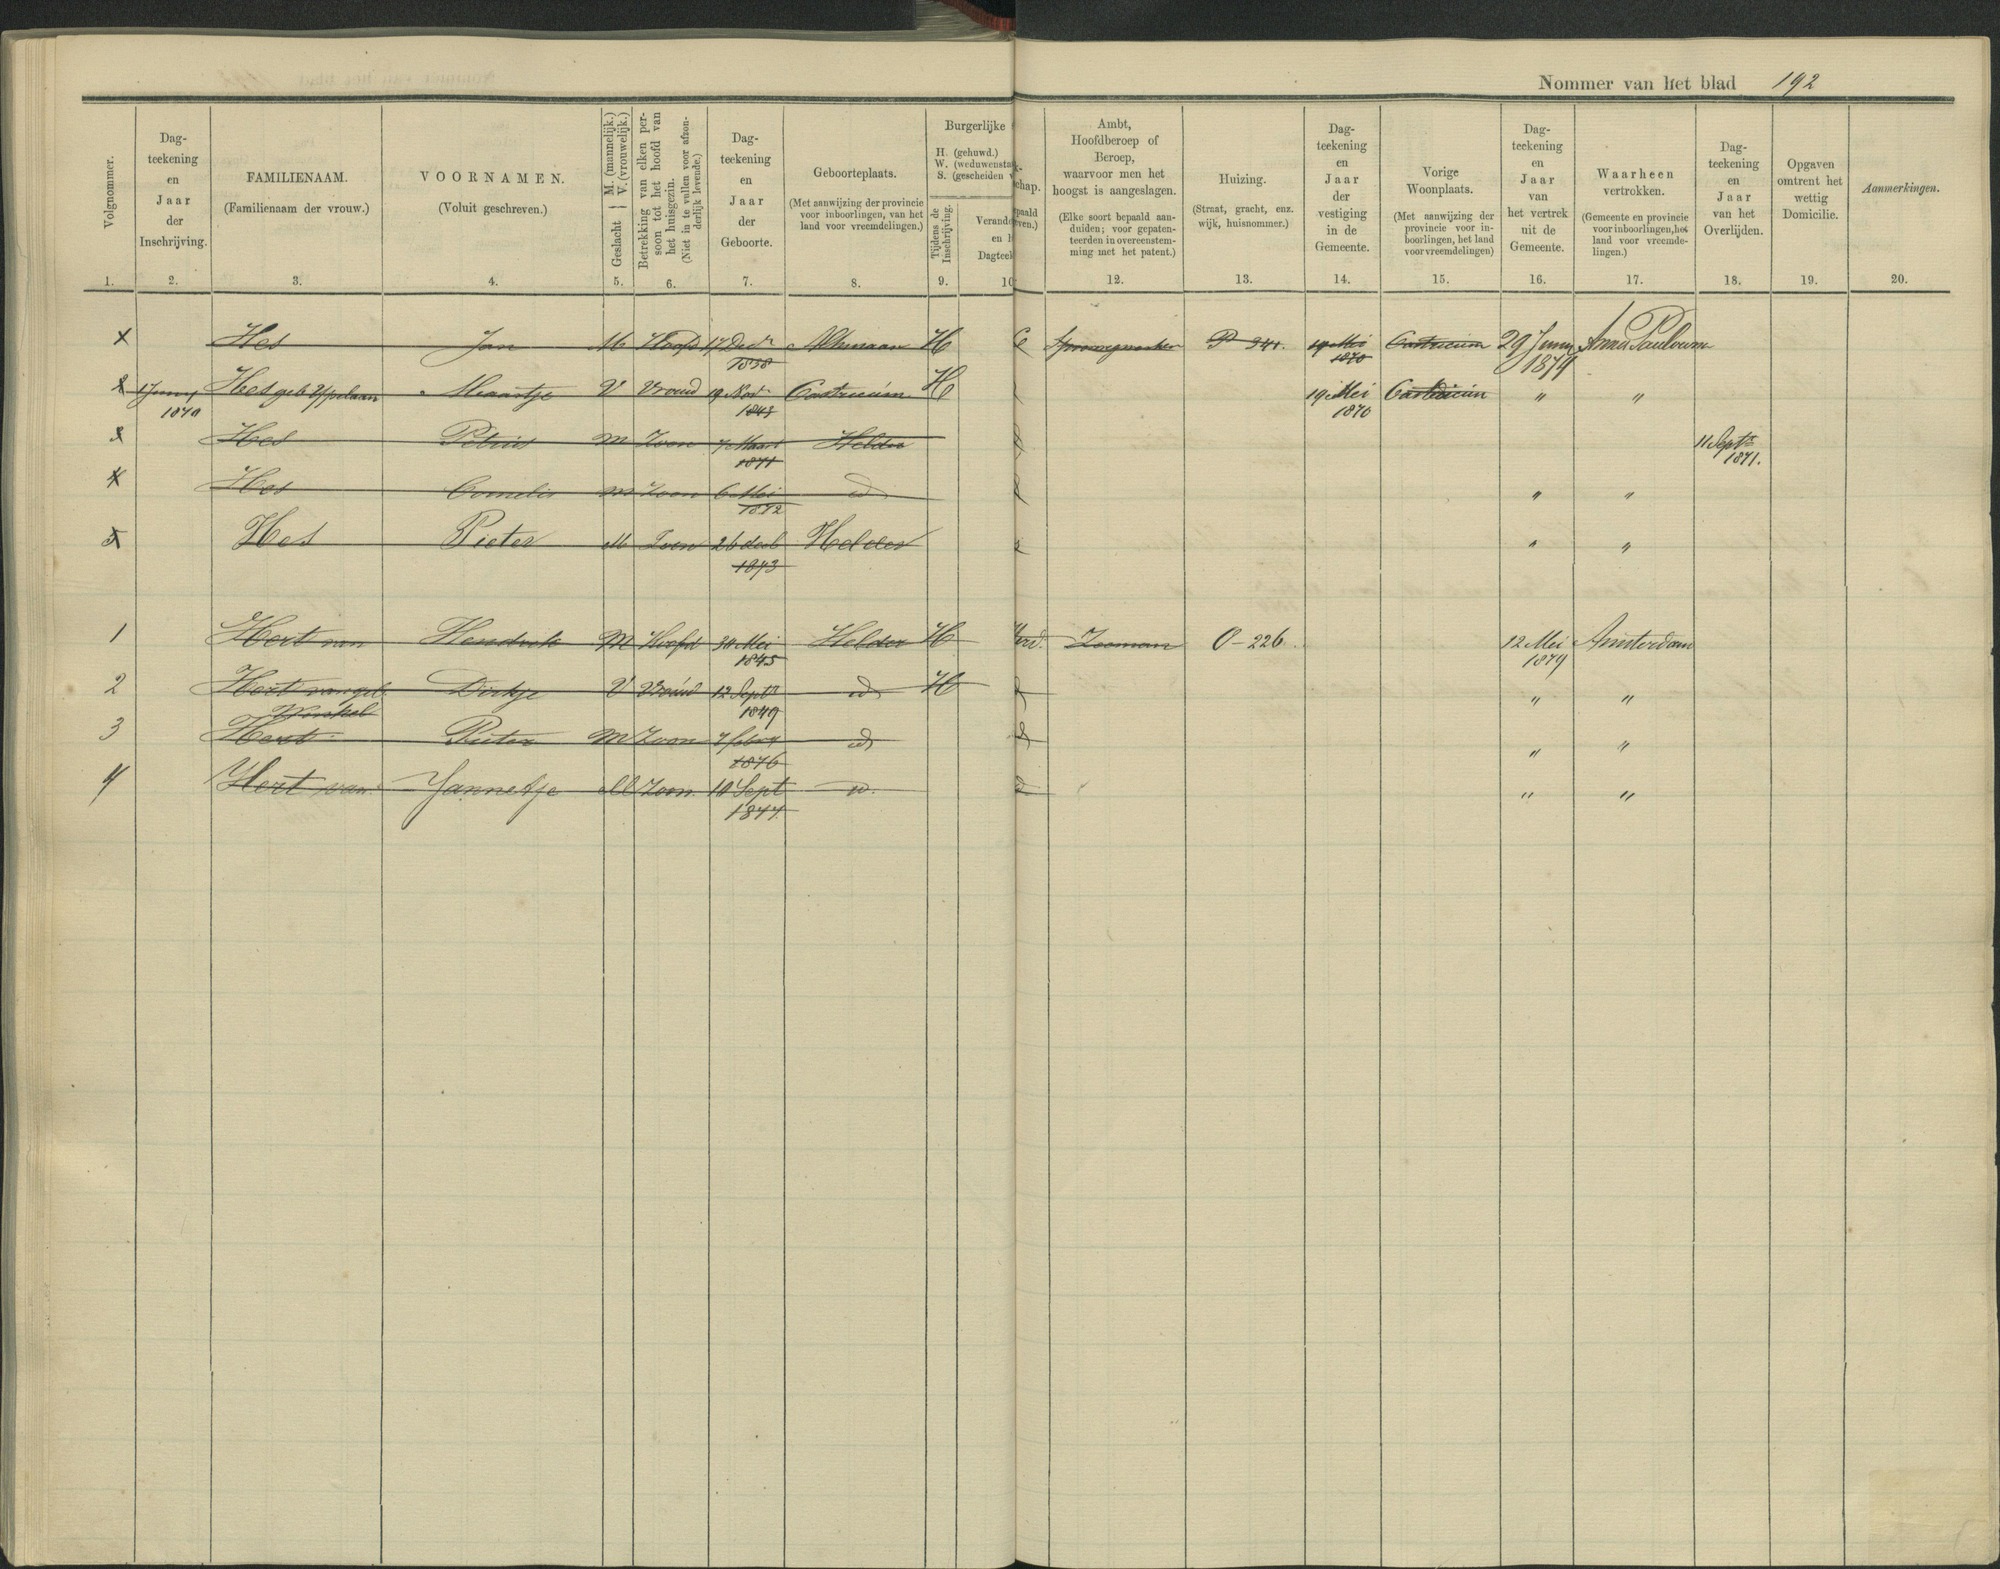 Nommer van het blad 192
Volgnommer.
Dag-
teekening
en
Jaar
der
Inschrijving.
FAMILIENAAM.
(Familienaam der vrouw.)
VOORNAMEN.
(Voluit geschreven.)
Geslacht { M. (mannelijk.)
V. (vrouwelijk.)
Betrekking van elken per-
soon tot het hoofd van
het huisgezin.
(Niet in te vullen voor afzon-
derlijk levende.)
Dag-
teekening
en
Jaar
der
Geboorte.
Geboorteplaats.
(Met aanwijzing der provincie
voor inboorlingen, van het
land voor vreemdelingen.)
Burgerlijke
H. (gehuwd.)
W. (weduwensta
S. (gescheiden v
Tijdens de
Inschrijving.
Verande
en h
Dagteek
chap.
paald
ven.)
Ambt,
Hoofdberoep of
Beroep,
waarvoor men het
hoogst is aangeslagen.
(Elke soort bepaald aan-
duiden; voor gepaten-
teerden in overeenstem-
ming met het patent.)
Huizing.
(Straat, gracht, enz.
wijk, huisnommer.)
Dag-
teekening
en
Jaar
der
vestiging
in de
Gemeente.
Vorige
Woonplaats.
(Met aanwijzing der
provincie voor in-
boorlingen, het land
voor vreemdelingen)
Dag-
teekening
en
Jaar
van
het vertrek
uit de
Gemeente.
Waarheen
vertrokken.
(Gemeente en provincie
voor inboorlingen, het
land voor vreemde-
lingen.)
Dag-
teekening
en
Jaar
van het
Overlijden.
Opgaven
omtrent het
wettig
Domicilie.
Aanmerkingen.
1. 2. 3. 4. 5. 6. 7. 8. 9. 10 12. 13. 14. 15. 16. 17. 18. 19. 20.
Hes Jan M Hoofd 17 Decr Alkmaar H P 341. 19 Mei Castricum 29 Juny Anna Paulowna
1838 1870 1879
1870 Hes geb Maartje V Vrouw 19 Nov Castricum H 19 Mei Castricum " "
1870
Hes Petrus M Zoon 7 Maart Helder 11 Septr
1871 1871.
Hes Cornelis M Zoon 6 Mei id " "
1872
Hes Pieter M Zoon 26 Helder " "
1873
1 Hert van Hendrik M Hoofd 30 Mei Helder H Zeeman O-226 12 Mei Amsterdam
1845 1879
2 Hert van geb Dirkje V Vrouw 12 Septr id H " "
Winkel 1849
3 Hert Pieter M Zoon 7 id " "
1876
4 Hert van Jannetje M Zoon 10 Sept id. " "
1877